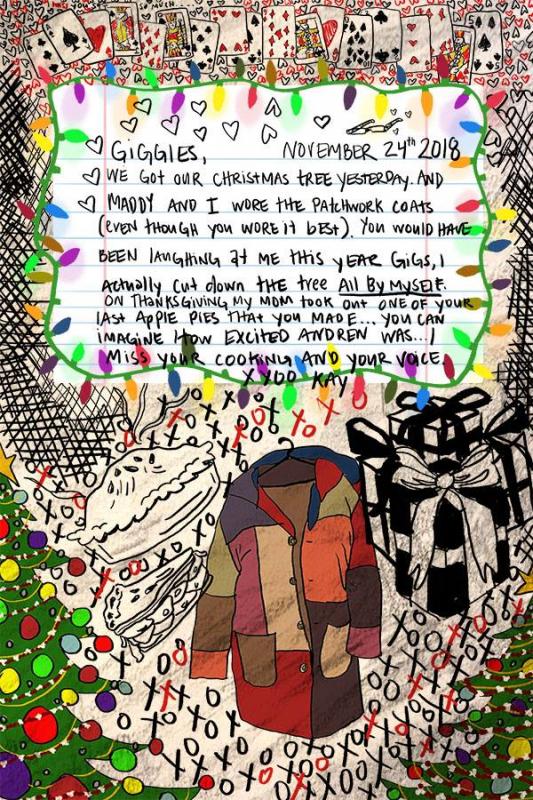 GIGGLES, NOVEMBER 24th 2018
WE GOT OUR CHRISTMAS TREE YESTERDAY. AND
MADDY AND I WORE THE PATCHWORK COATS
(EVEN THOUGH YOU WORE IT BEST). YOU WOULD HAVE
BEEN LAUGHING AT ME THIS YEAR GIGS, I
ACTUALLY CUT DOWN THE TREE ALL BY MYSELF.
ON THANKSGIVING MY MOM TOOK OUT ONE OF YOUR
LAST APPLE PIES THAT YOU MADE... YOU CAN
IMAGINE HOW EXCITED ANDREN WAS... I
MISS YOUR COOKING AND YOUR VOICE.
XXOO KAY